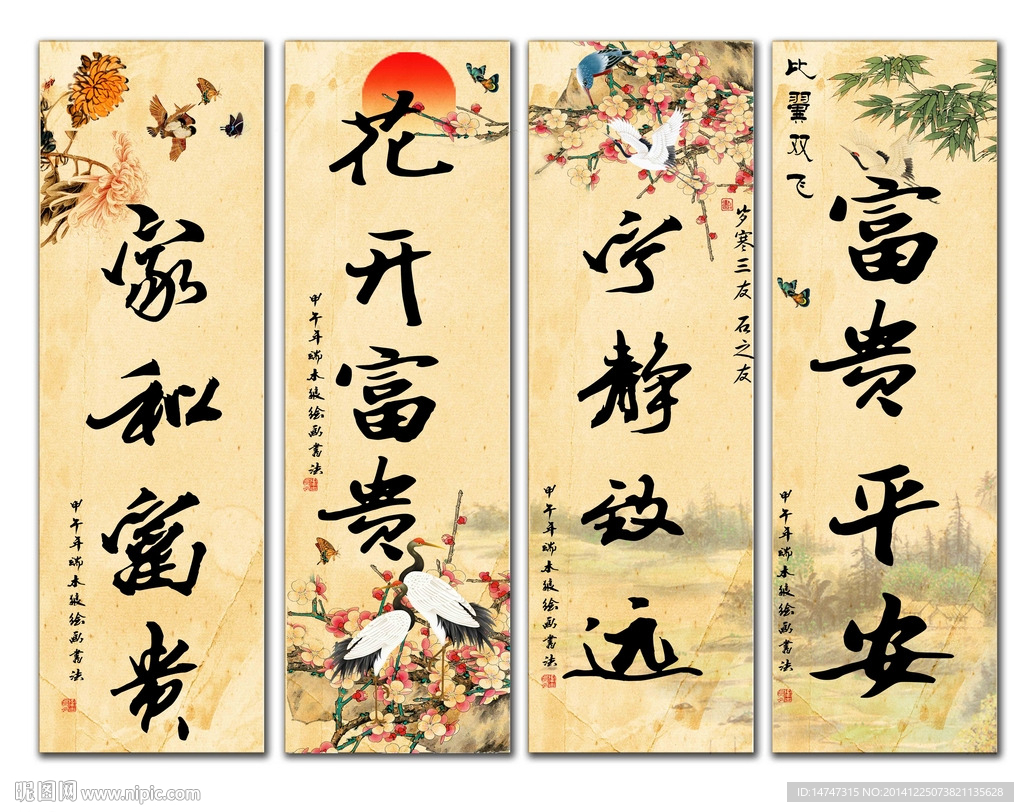 家和富贵
甲午年端木绘画書法
花开富贵
甲午年端木绘画書法
宁静致远
岁寒三友 石之友
甲午年端木绘画書法
比翼双飞
富贵平安
甲午年端木绘画書法
昵图网 www.nipic.com
ID:14747315 NO:20141225073821135628